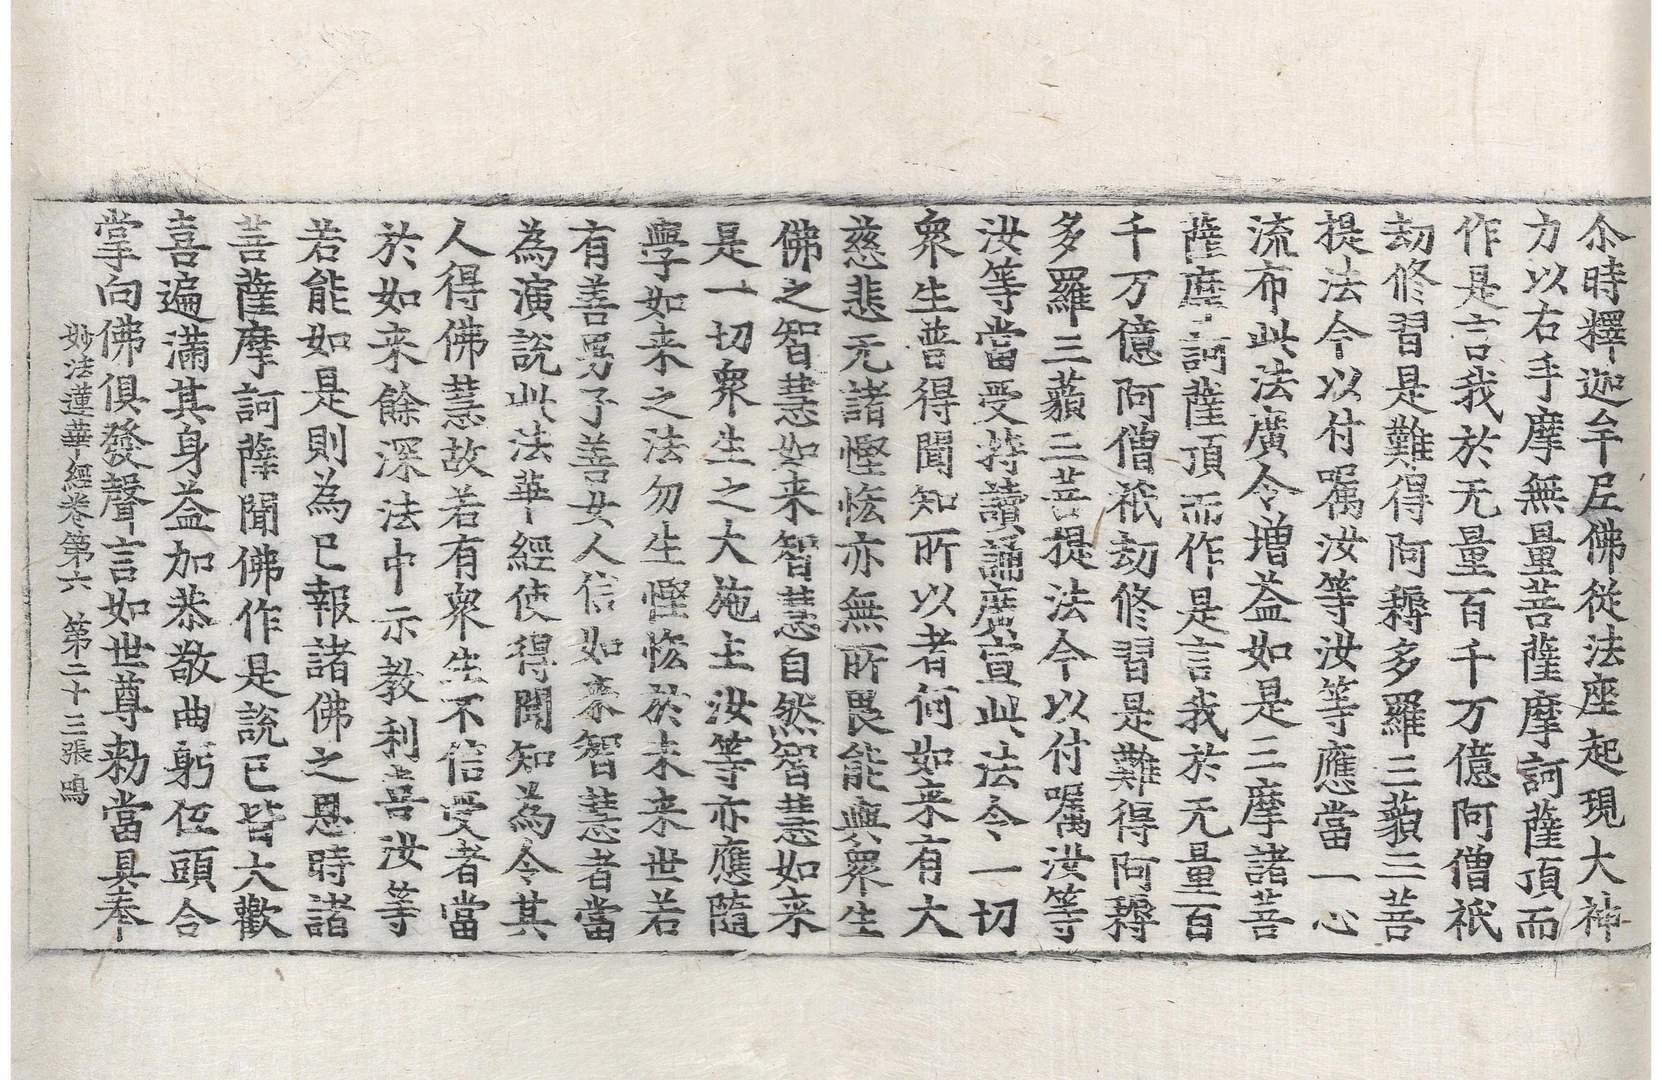 尒時釋迦牟尼佛從法座起現大神
力以右手摩無量菩薩摩訶薩頂而
作是言我於无量百千万億阿僧祇
劫修習是難得阿耨多羅三藐三菩
提法今以付嘱汝等汝等應當一心
流布此法廣令增益如是三摩諸菩
薩摩訶薩頂而作是言我於无量百
千万億阿僧祇劫修習是難得阿耨
多羅三藐三菩提法今以付嘱汝等
汝等當受持讀誦廣宣此法令一切
衆生普得聞知所以者何如来有大
慈悲无諸慳悋亦無所畏能與衆生
佛之智慧如来智慧自然智慧如来
是一切衆生之大施主汝等亦應隨
學如来之法勿生慳悋於未来世若
有善男子善女人信如来智慧者當
為演說此法華經使得聞知為令其
人得佛慧故若有衆生不信受者當
於如来餘深法中示教利喜汝等
若能如是則為已報諸佛之恩時諸
菩薩摩訶薩聞佛作是說已皆大歡
喜遍滿其身益加恭敬曲躬伍頭合
掌向佛俱發聲言如世尊勑當具奉
妙法蓮華經卷第六 第二十三張 鳴